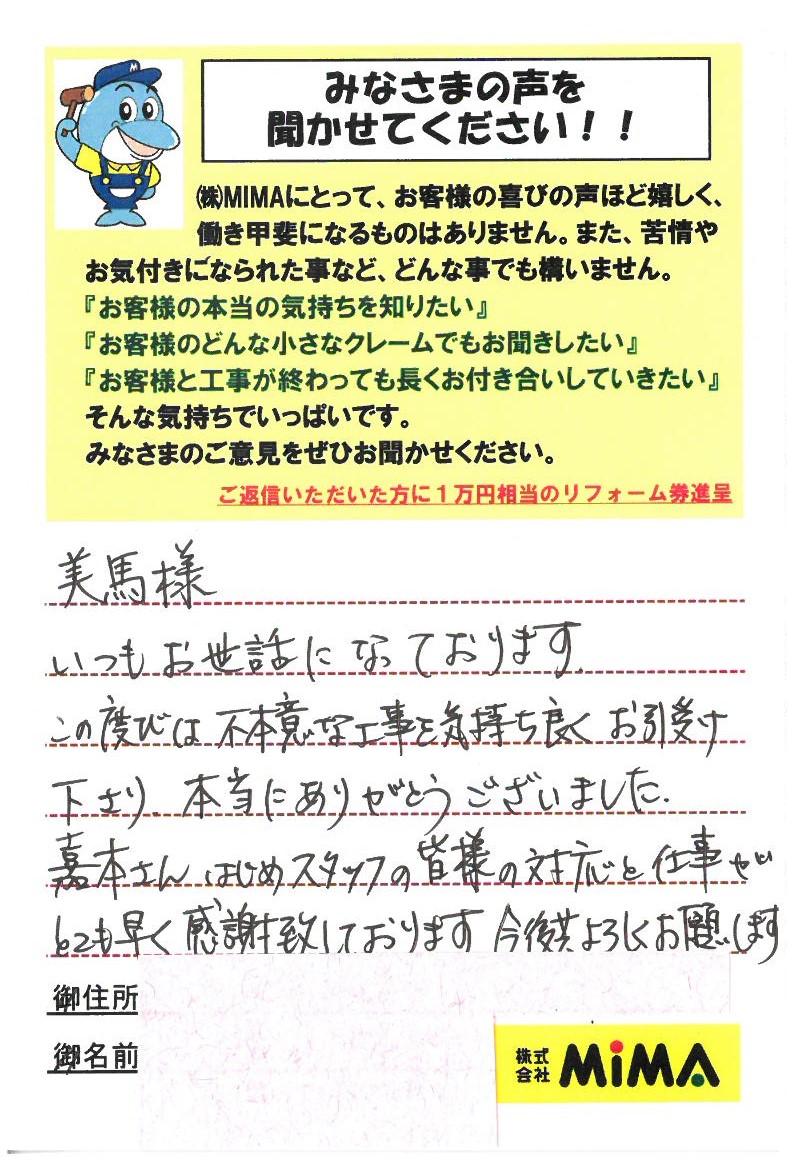 みなさまの声を
聞かせてください！！
㈱MIMAにとって、お客様の喜びの声ほど嬉しく、
働き甲斐になるものはありません。また、苦情や
お気付きになられた事など、どんな事でも構いません。
『お客様の本当の気持ちを知りたい』
『お客様のどんな小さなクレームでもお聞きしたい』
『お客様と工事が終わっても長くお付き合いしていきたい』
そんな気持ちでいっぱいです。
みなさまのご意見をぜひお聞かせください。
ご返信いただいた方に１万円相当のリフォーム券進呈
美馬様
いつもお世話になっております。
この度びは不本意な工事を気持ち良くお引受け
下さり、本当にありがとうございました。
嘉本さんはじめスタッフの皆様の対応と仕事が
とても早く感謝致しております 今後共よろしくお願いします
御住所
御名前
株式会社 MiMA